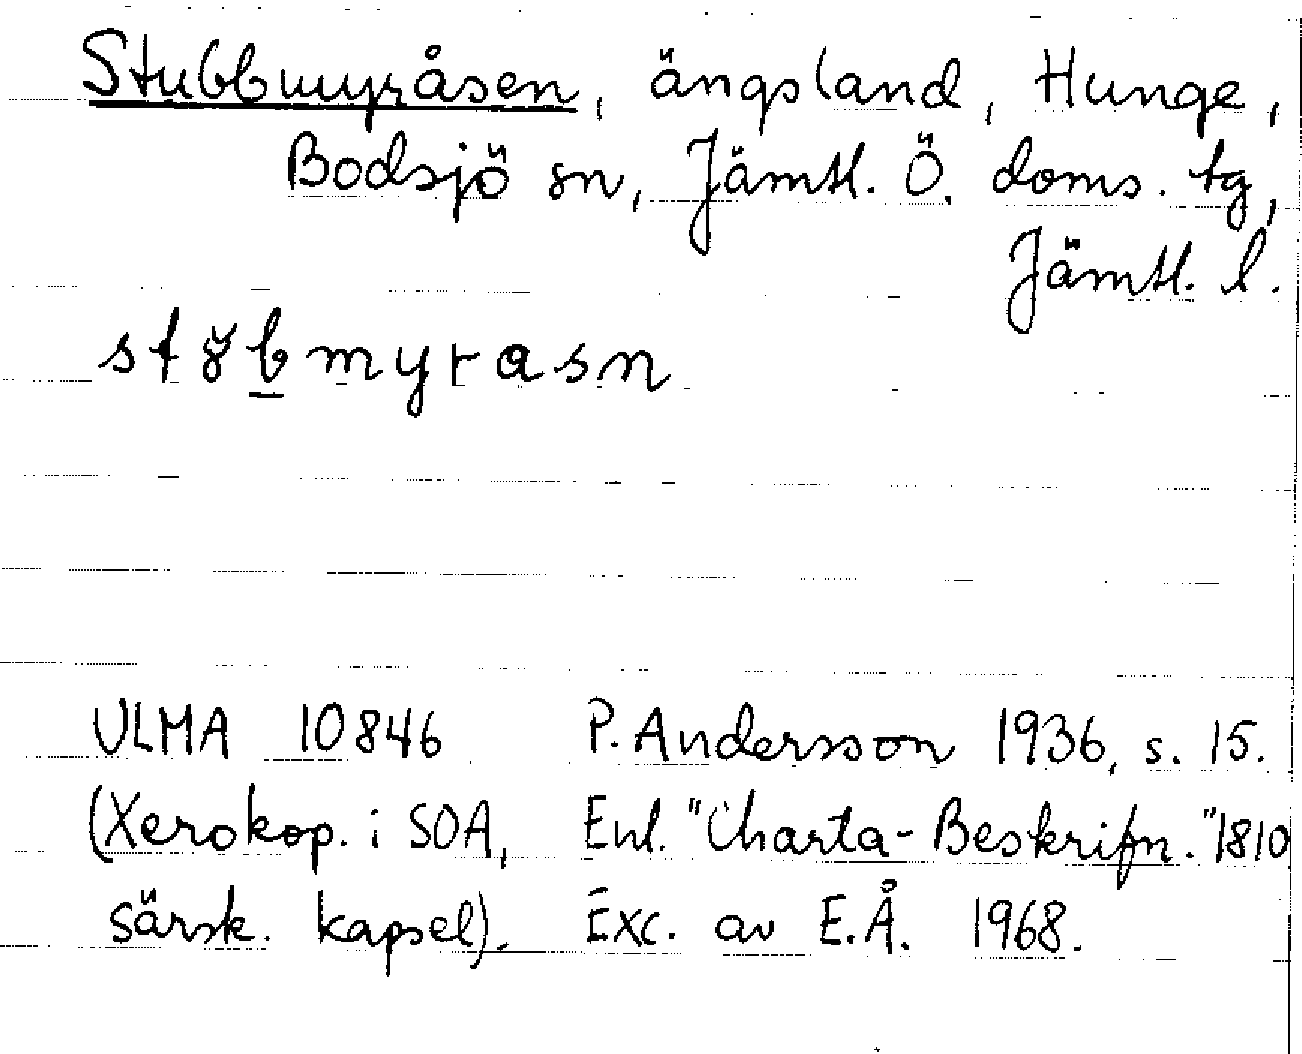 Stubbmyråsen, ängsland, Hunge,
Bodsjö sn, Jämtl. Ö. doms. tg,
Jämtl. l.
myrasn
ULMA 10846 P. Andersson 1936, s. 15.
(Xerokop. i SOA, Enl. "Charta-Beskrifn." 1810
särsk. kapsel). Exc. av E.Å. 1968.